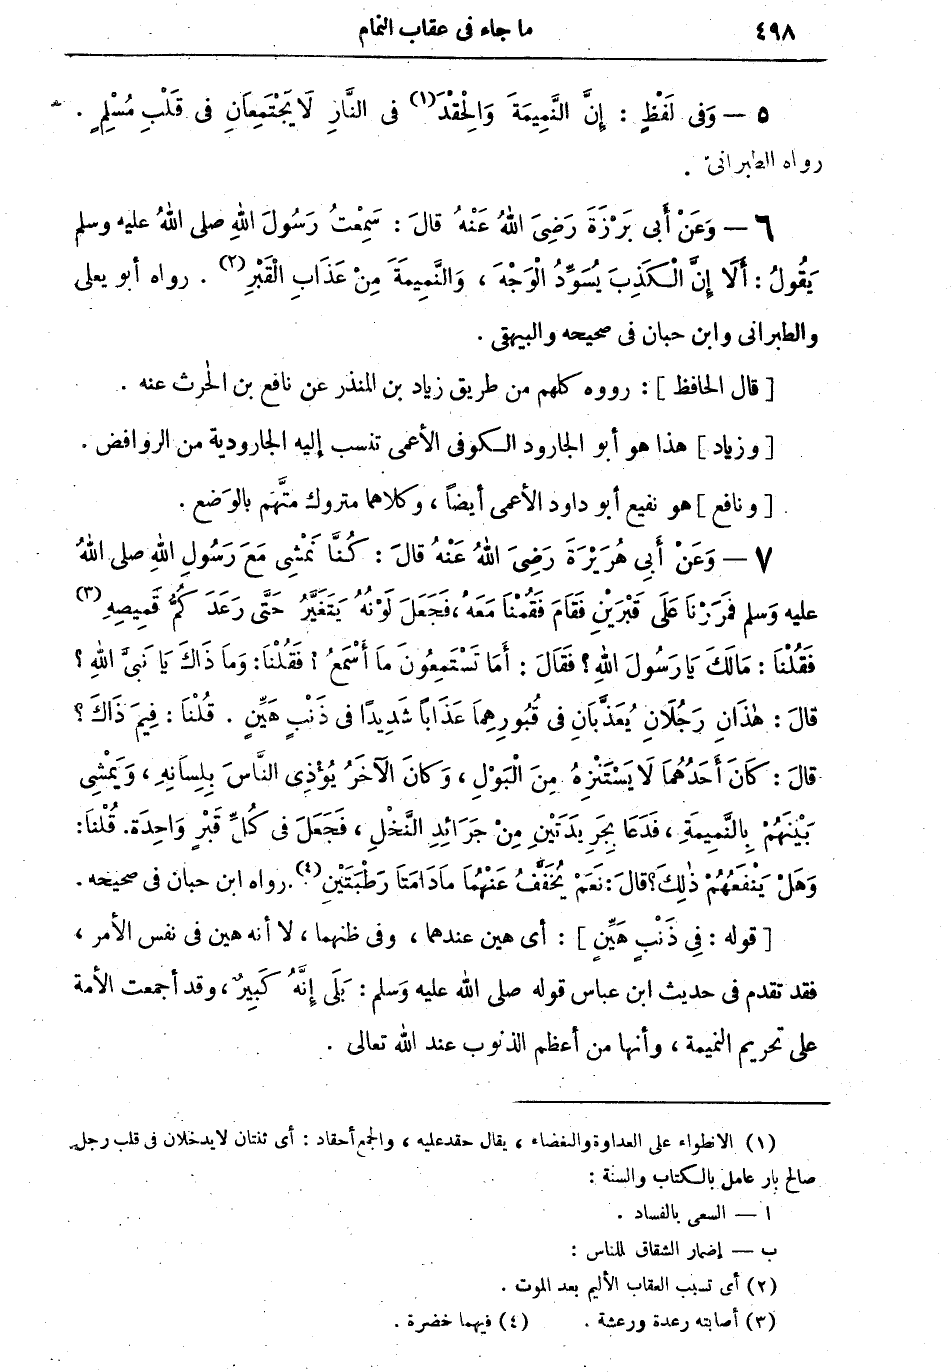 ٤٩٨ ما جاء فى عقاب النمام
٥ — وَفى لَفْظٍ : إِنَّ النَّمِيمَةَ وَالْحِقْدَ(١) فى النَّارِ لَا يَجْتَمِعَانِ فى قَلْبِ مُسْلِمٍ .
رواه الطبرانىّ .
٦ — وَعَنْ أَبى بَرْزَةَ رَضِىَ اللهُ عَنْهُ قالَ : سَمِعْتُ رَسُولَ اللهِ صلى اللهُ عليه وسلم
يَقُولُ : أَلَا إِنَّ الْـكَذِبَ يُسَوِّدُ الْوَجْهَ ، وَالنَّمِيمَةَ مِنْ عَذَابِ الْقَبْرِ(٢) . رواه أبو يعلى
والطبرانى وابن حبان فى صحيحه والبيهقى .
[ قال الحافظ ] : رووه كلهم من طريق زياد بن المنذر عن نافع بن الحٰرث عنه .
[ وزياد ] هذا هو أبو الجارود الـكوفى الأعمى تنسب إليه الجارودية من الروافض .
[ ونافع ] هو نفيع أبو داود الأعمى أيضاً ، وكلاهما متروك متَّهَم بالوَضع .
٧ — وَعَنْ أَبِى هُرَيْرَةَ رَضِىَ اللهُ عَنْهُ قالَ : كُنَّا نَمْشِى مَعَ رَسُولِ اللهِ صلى اللهُ
عليه وَسلم فَمَرَرْنَا عَلَى قَبْرَيْنِ فَقَامَ فَقُمْنَا مَعَهُ ، فَجَعَلَ لَوْنُهُ يَتَغَيَّرُ حَتَّى رَعَدَ كُمُّ قَمِيصِهِ(٣)
فَقُلْنَا : مَالَكَ يَا رَسُولَ اللهِ ؟ فَقَالَ : أَمَا تَسْتَمِعُونَ ما أَسْمَعُ ؟ فَقُلْنَا : وَما ذَاكَ يَا نَبِىَّ اللهِ ؟
قالَ : هٰذَانِ رَجُلَانِ يُعَذَّبَانِ فى قُبُورِهِمَا عَذَاباً شَدِيدًا فى ذَنْبٍ هَيِّنٍ . قُلْنَا : فِيمَ ذَاكَ ؟
قالَ : كَانَ أَحَدُهُمَا لَا يَسْتَنْزِهُ مِنَ الْبَوْلِ ، وَكانَ الْآخَرُ يُؤْذِى النَّاسَ بِلِسَانِهِ ، وَيَمْشِى
بَيْنَهُمْ بِالنَّمِيمَةِ ، فَدَعَا بِجَرِيدَتَيْنِ مِنْ جَرَائِدِ النَّخْلِ ، فَجَعَلَ فى كُلِّ قَبْرٍ وَاحِدَةً . قُلْنَا :
وَهَلْ يَنْفَعُهُمْ ذٰلِكَ ؟ قالَ : نَعَمْ يُخَفَّفُ عَنْهُمَا مَادَامَتَا رَطْبَتَيْنِ(٤) . رواه ابن حبان فى صحيحه .
[ قوله : فِى ذَنْبٍ هَيِّنٍ ] : أى هين عندهما ، وفى ظنهما ، لا أنه هين فى نفس الأمر ،
فقد تقدم فى حديث ابن عباس قوله صلى الله عليه وَسلم : بَلَى إِنَّهُ كَبِيرٌ ، وقد أجمعت الأمة
على تحريم النميمة ، وأنها من أعظم الذنوب عند الله تعالى .
(١) الانطواء على العداوة والبغضاء ، يقال حقد عليه ، والجمع أحقاد : أى ثنتان لا يدخلان فى قلب رجل
صالح بار عامل بالـكتاب والسنة :
ا — السعى بالفساد .
ب — إضمار الشقاق للناس :
(٢) أى تسبب العقاب الأليم بعد الموت .
(٣) أصابته رعدة ورعشة . (٤) فيهما خضرة .